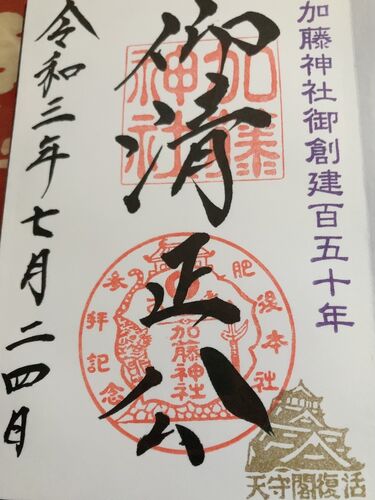 加藤神社御創建百五十年
加藤
神社
仰清正公
肥後本社
参拝記念
加藤神社
天守閣復活
令和三年七月二四日